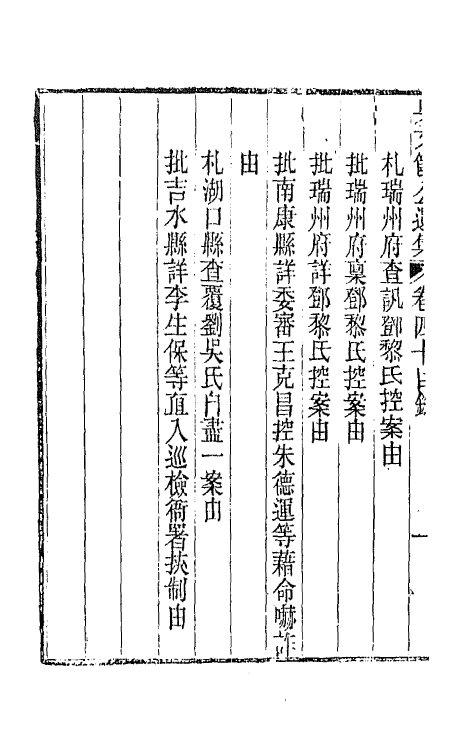 吳文節公遺集 卷四十目錄 一
札瑞州府查訊鄧黎氏控案由
批瑞州府稟鄧黎氏控案由
批瑞州府詳鄧黎氏控案由
批南康縣詳委審王克昌控朱德運等藉命嚇詐
由
札湖口縣查覆劉吳氏自盡一案由
批吉水縣詳李生保等直入巡檢衙署挾制由